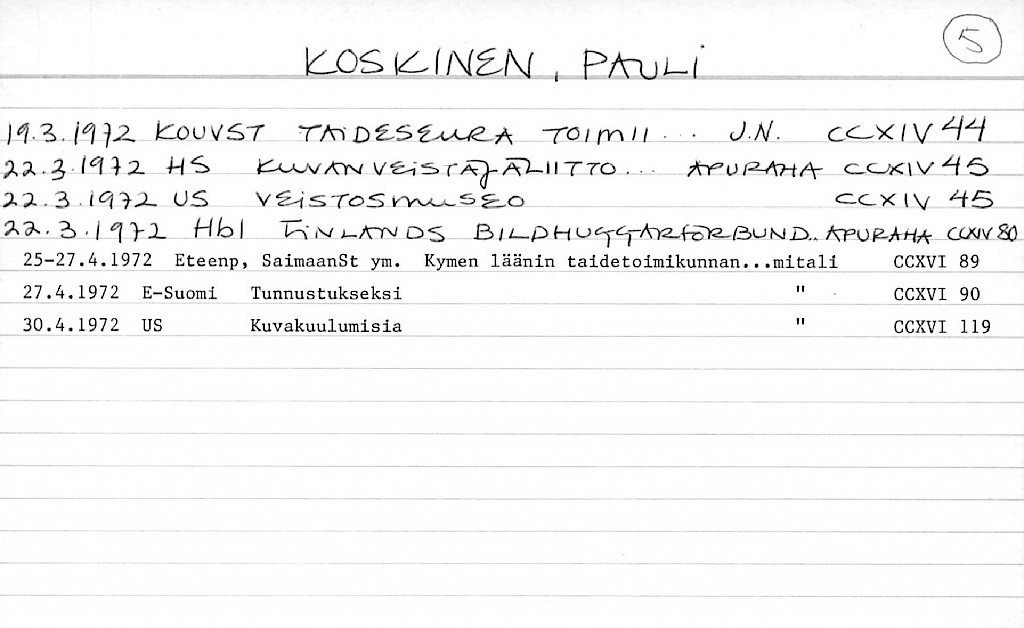 5
KOSKINEN, PAULI
19.3.1972 KOUVST TAIDESEURA TOIMII... J.N. CCXIV 44
22.3.1972 HS KUVANVEISTÄJÄLIITTO... APURAHA CCXIV 45
22.3.1972 US VEISTOSMUSEO CCXIV 45
22.3.1972 Hbl FINLANDS BILDHUGGARFÖRBUND.. APURAHA CCXIV 80
25-27.4.1972 Eteenp, SaimaanSt ym. Kymen läänin taidetoimikunnan...mitali CCXVI 89
27.4.1972 E-Suomi Tunnustukseksi " CCXVI 90
30.4.1972 US Kuvakuulumisia " CCXVI 119